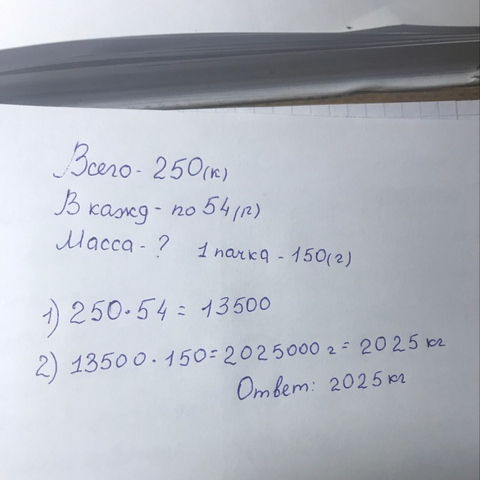 Всего - 250(к)
В кажд - по 54(п)
Масса - ? 1 пачка - 150(г)
1) 250·54 = 13500
2) 13500·150 = 2025000 г = 2025 кг
Ответ: 2025 кг